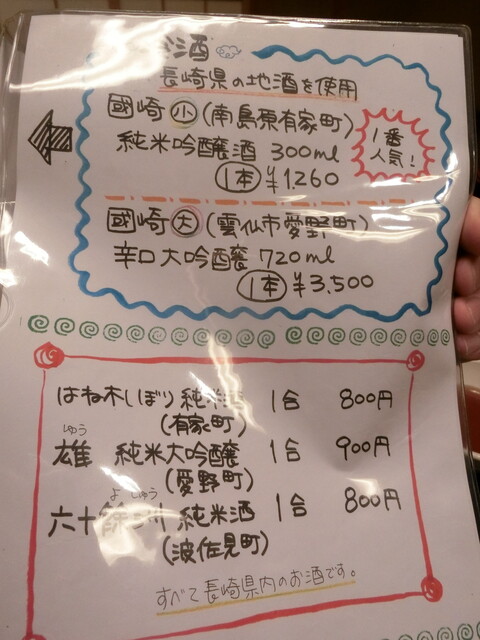 酒
長崎県の地酒を使用
國崎 小 (南島原有家町)
純米吟醸酒 300ml
1本 ¥1,260
1番
人気!
國崎 大 (雲仙市愛野町)
辛口大吟醸 720ml
1本 ¥3,500
はね木しぼり 純米 1合 800円
(有家町)
しゅう
雄 純米大吟醸 1合 900円
(愛野町)
よ しゅう
六十餘州 純米酒 1合 800円
(波佐見町)
すべて長崎県内のお酒です。